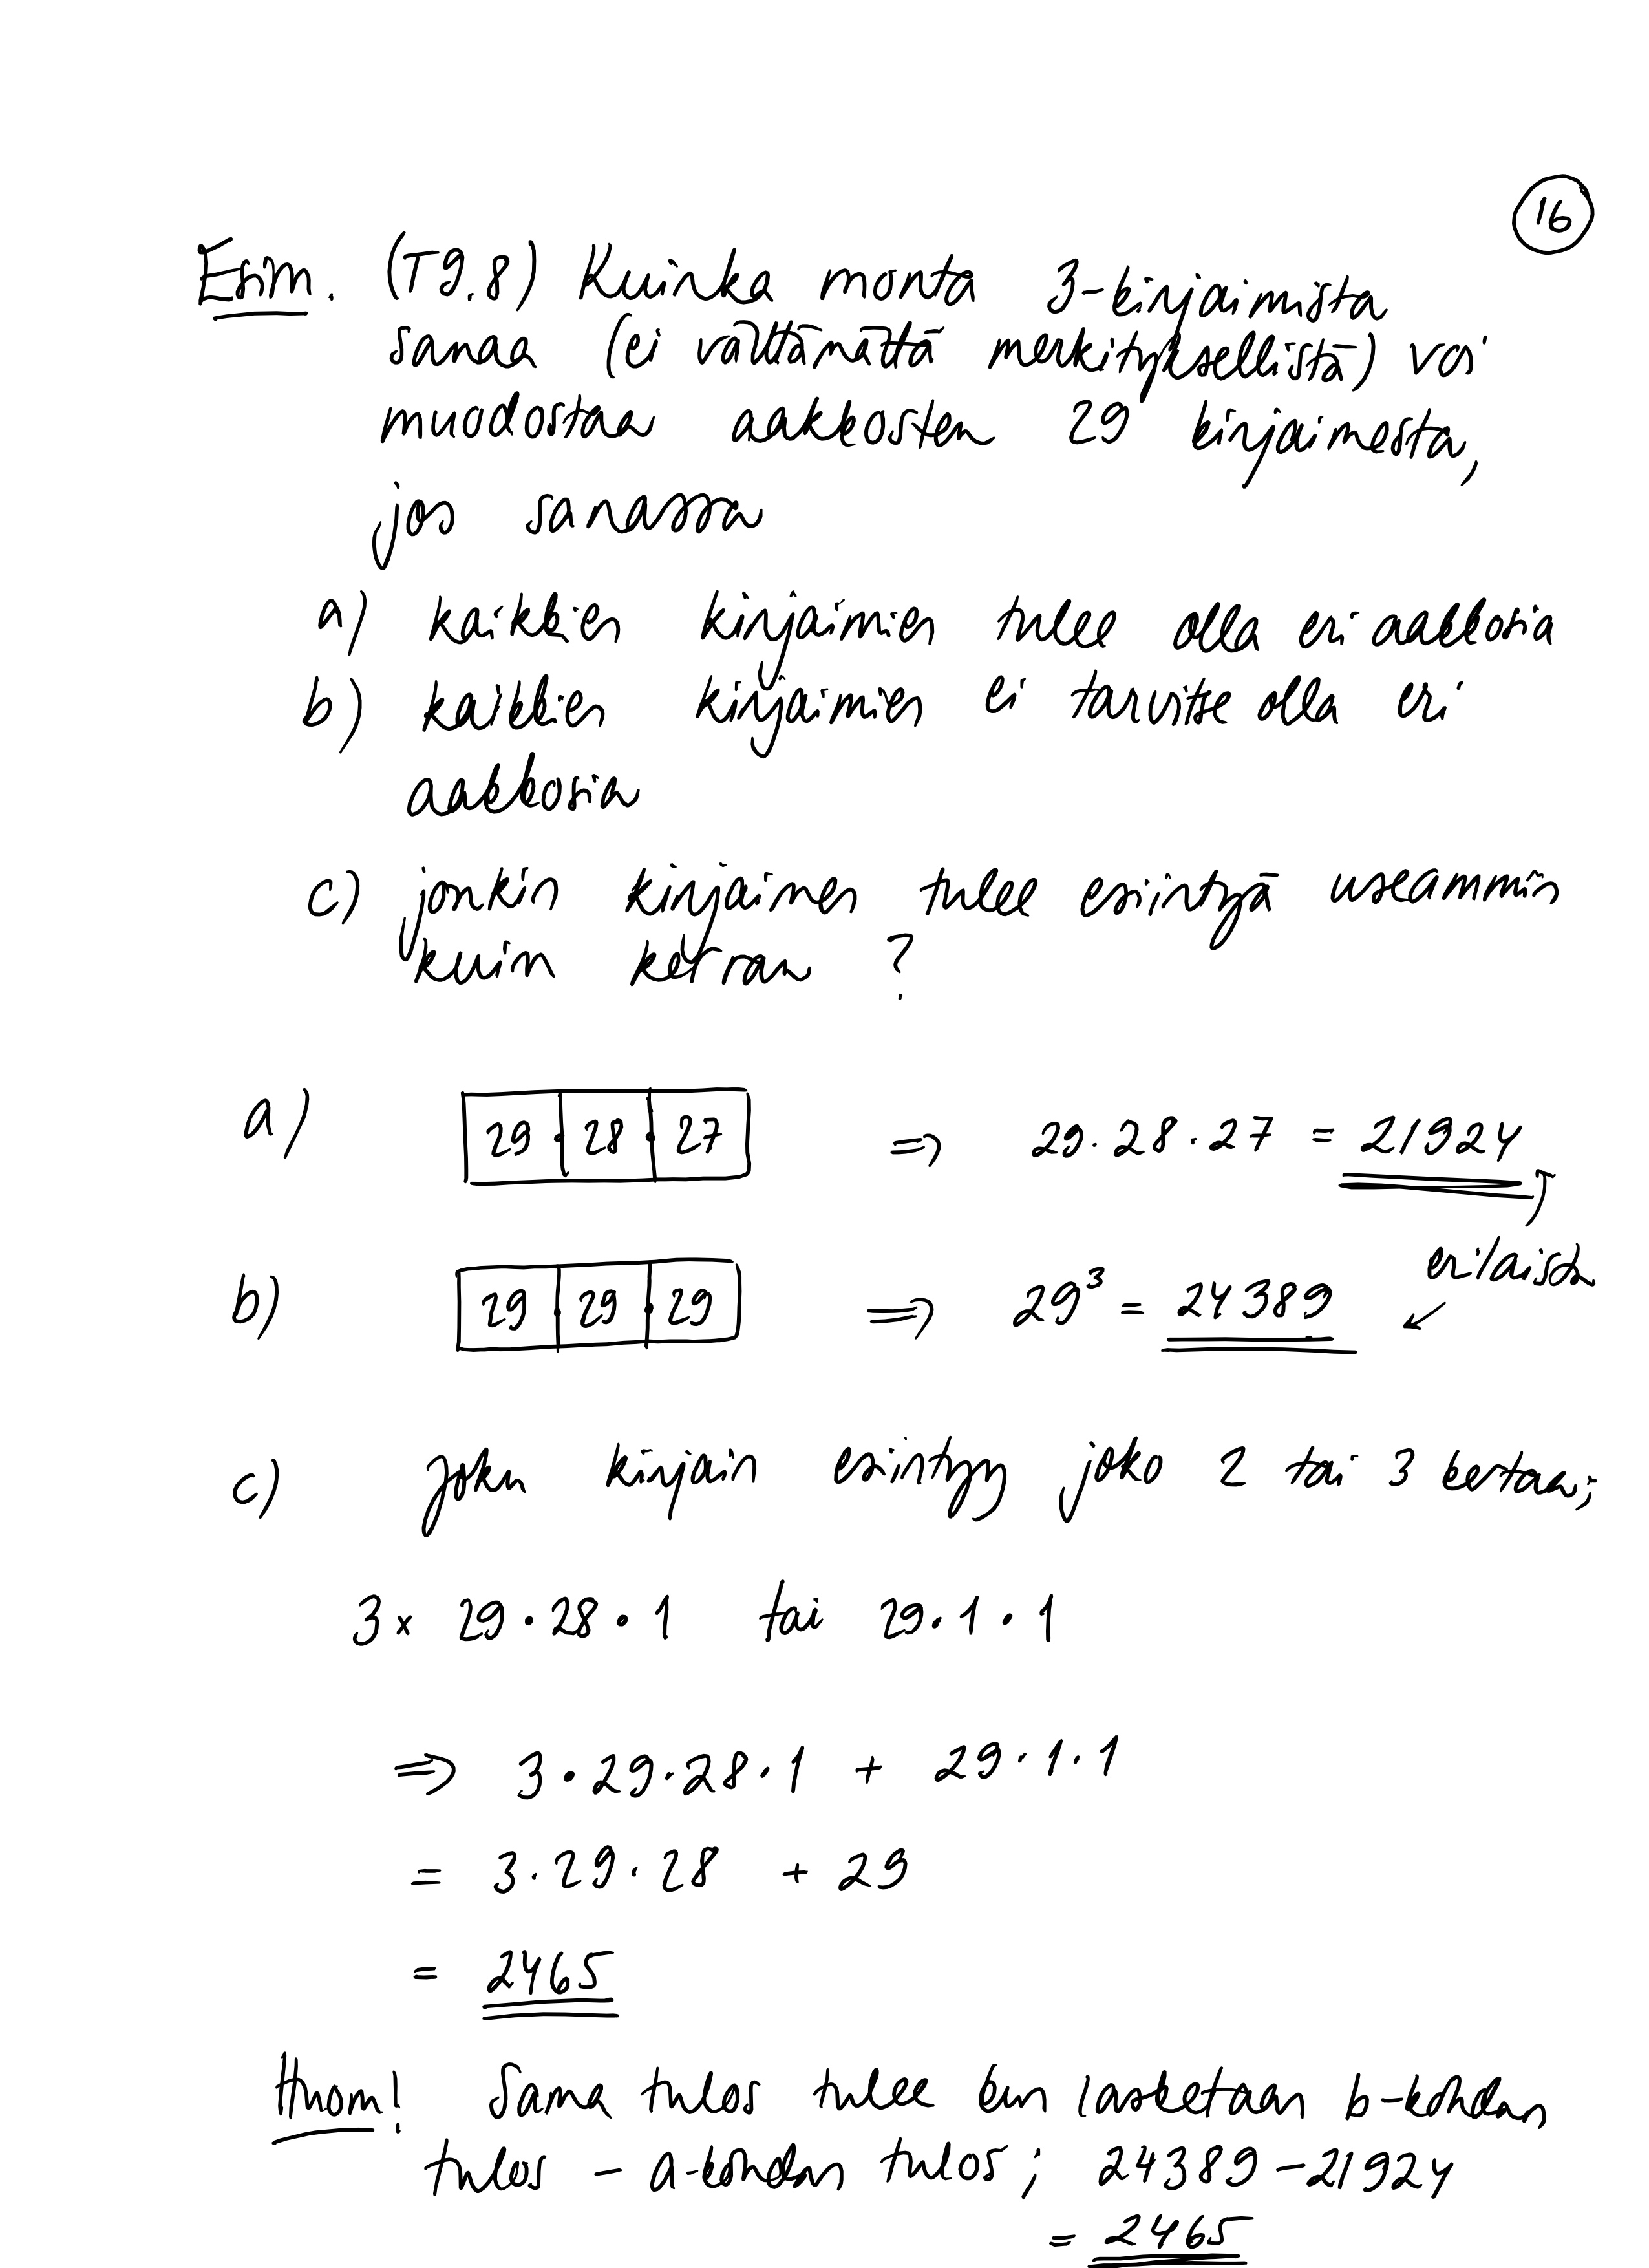 16
Esim. (T9.8) Kuinka monta 3-kirjaimista
sanaa (ei välttämättä merkityksellistä) voi
muodostaa aakkosten 29 kirjaimesta,
jos sanassa
a) kaikkien kirjaimien tulee olla eri aakkosia
b) kaikkien kirjaimien ei tarvitse olla eri
aakkosia
c) jonkin kirjaimen tulee esiintyä useammin
kuin kerran ?
a) 29 · 28 · 27 ⇒ 29 · 28 · 27 = 21924
erilaista
b) 29 · 29 · 29 ⇒ 29³ = 24389
c) Joku kirjain esiintyy joko 2 tai 3 kertaa;
3 x 29 · 28 · 1 tai 29 · 1 · 1
⇒ 3 · 29 · 28 · 1 + 29 · 1 · 1
= 3 · 29 · 28 + 29
= 2465
Huom! Sama tulos tulee kun lasketaan b-kohdan
tulos - a-kohdan tulos ; 24389 - 21924
= 2465